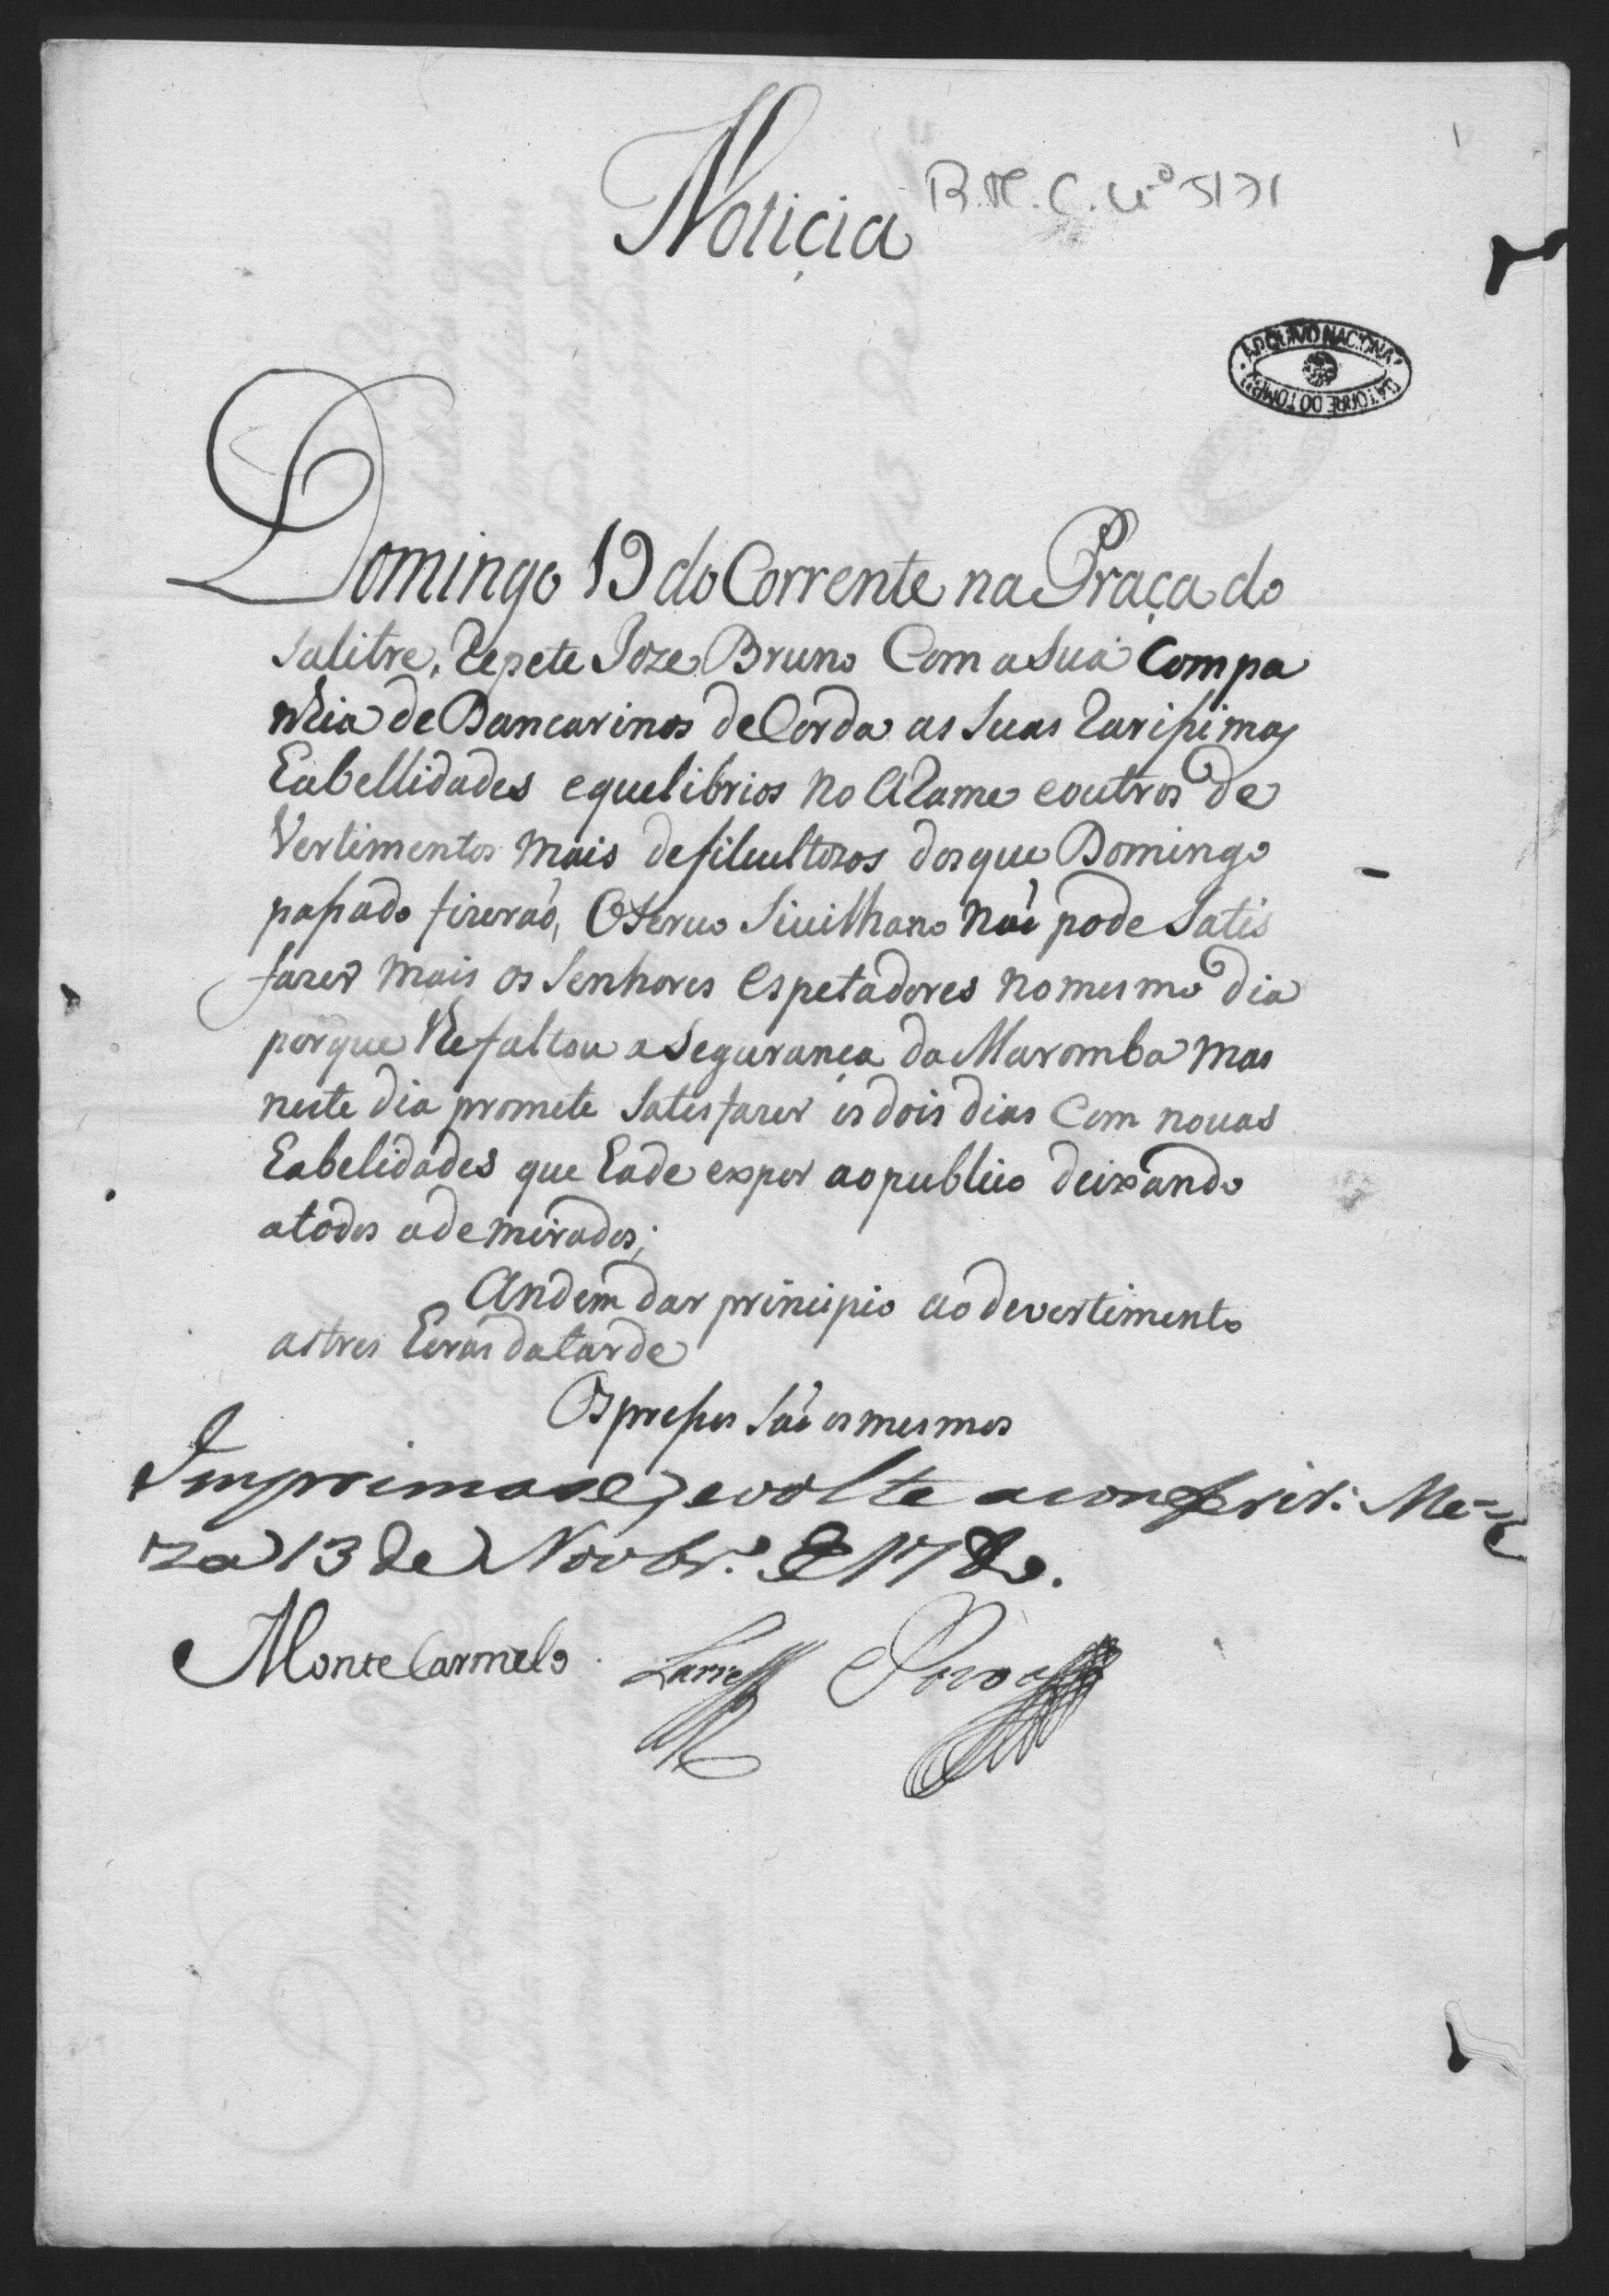 Noticia
R.M.C. nº 5171
1
ARQUIVO NACIONAL DA TORRE DO TOMBO
Domingo 19 do Corrente na Praça do
Salitre, Repete Joze Bruno Com a Sua Compa
nhia de Dancarinos de Corda as Suas rarissimas
Eabellidades equelibrios no Arame e outros de
Vertimentos mais defilcultozos dos que Domingo
passado fizeraõ, O Sivilhano naõ pode Satis
fazer mais os Senhores espetadores no mesmo dia
porque lhe faltou a Segurança da Maromba mas
neste dia promete Satesfazer os dois dias Com novas
Eabelidades que Eade expor ao publico deixando
a todos ademirados;
Andem dar principio ao devertimento
as tres Eoras da tarde
Os pressos Saõ os mesmos
Imprimase, e volte a conferir. Me=
za 13 de Novbr.º de 178
Monte Carmelo